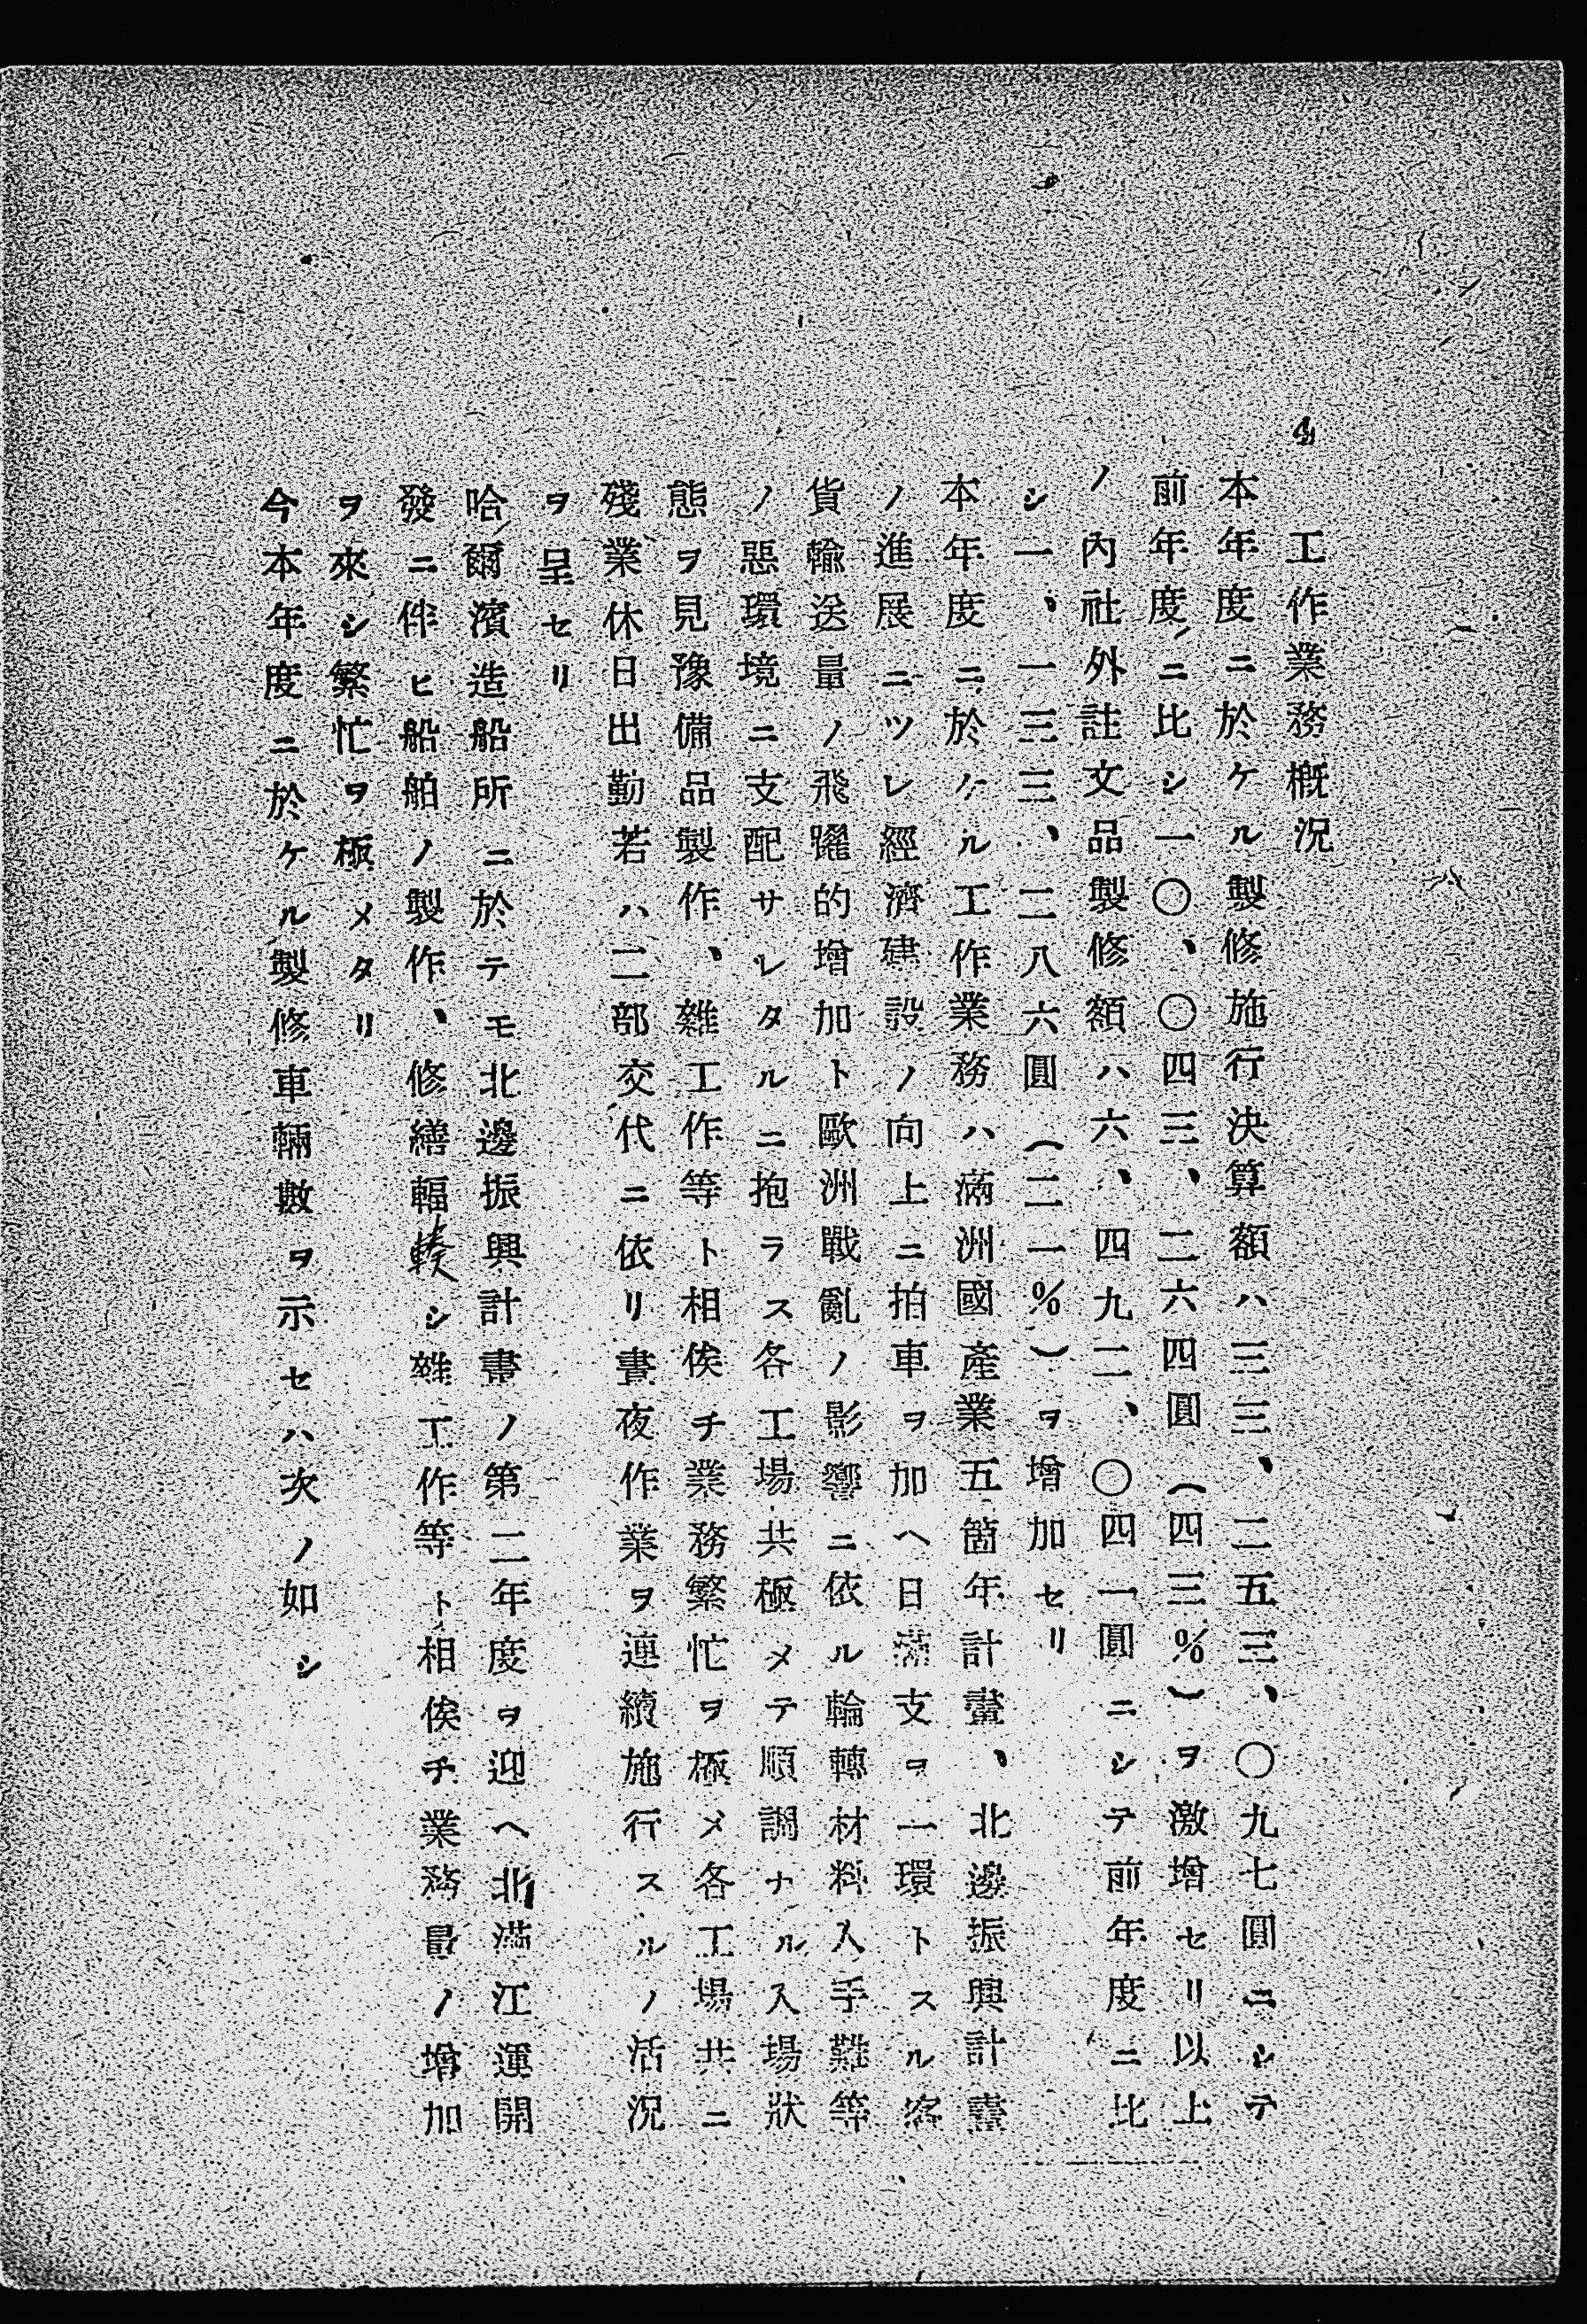 4　工作業務概況
本年度ニ於ケル製修施行決算額ハ三三、二五三、〇九七圓ニシテ
前年度ニ比シ一〇、〇四三、二六四圓（四三％）ヲ激增セリ以上
ノ內社外註文品製修額ハ六、四九二、〇四一圓ニシテ前年度ニ比
シ一、一三三、二八六圓（二一％）ヲ增加セリ
本年度ニ於ケル工作業務ハ滿洲國產業五箇年計畫、北邊振興計畫
ノ進展ニツレ經濟建設ノ向上ニ拍車ヲ加ヘ日滿支ヲ一環トスル客
貨輸送量ノ飛躍的增加ト歐洲戰亂ノ影響ニ依ル輪轉材料入手難等
ノ惡環境ニ支配サレタルニ抱ラス各工場共極メテ順調ナル入場狀
態ヲ見豫備品製作、雜工作等ト相俟チ業務繁忙ヲ極メ各工場共ニ
殘業休日出勤若ハ二部交代ニ依リ晝夜作業ヲ連續施行スルノ活況
ヲ呈セリ
哈爾濱造船所ニ於テモ北邊振興計畫ノ第二年度ヲ迎ヘ北滿江運開
發ニ伴ヒ船舶ノ製作、修繕輻輳シ雜工作等ト相俟チ業務量ノ增加
ヲ來シ繁忙ヲ極メタリ
今本年度ニ於ケル製修車輛數ヲ示セハ次ノ如シ